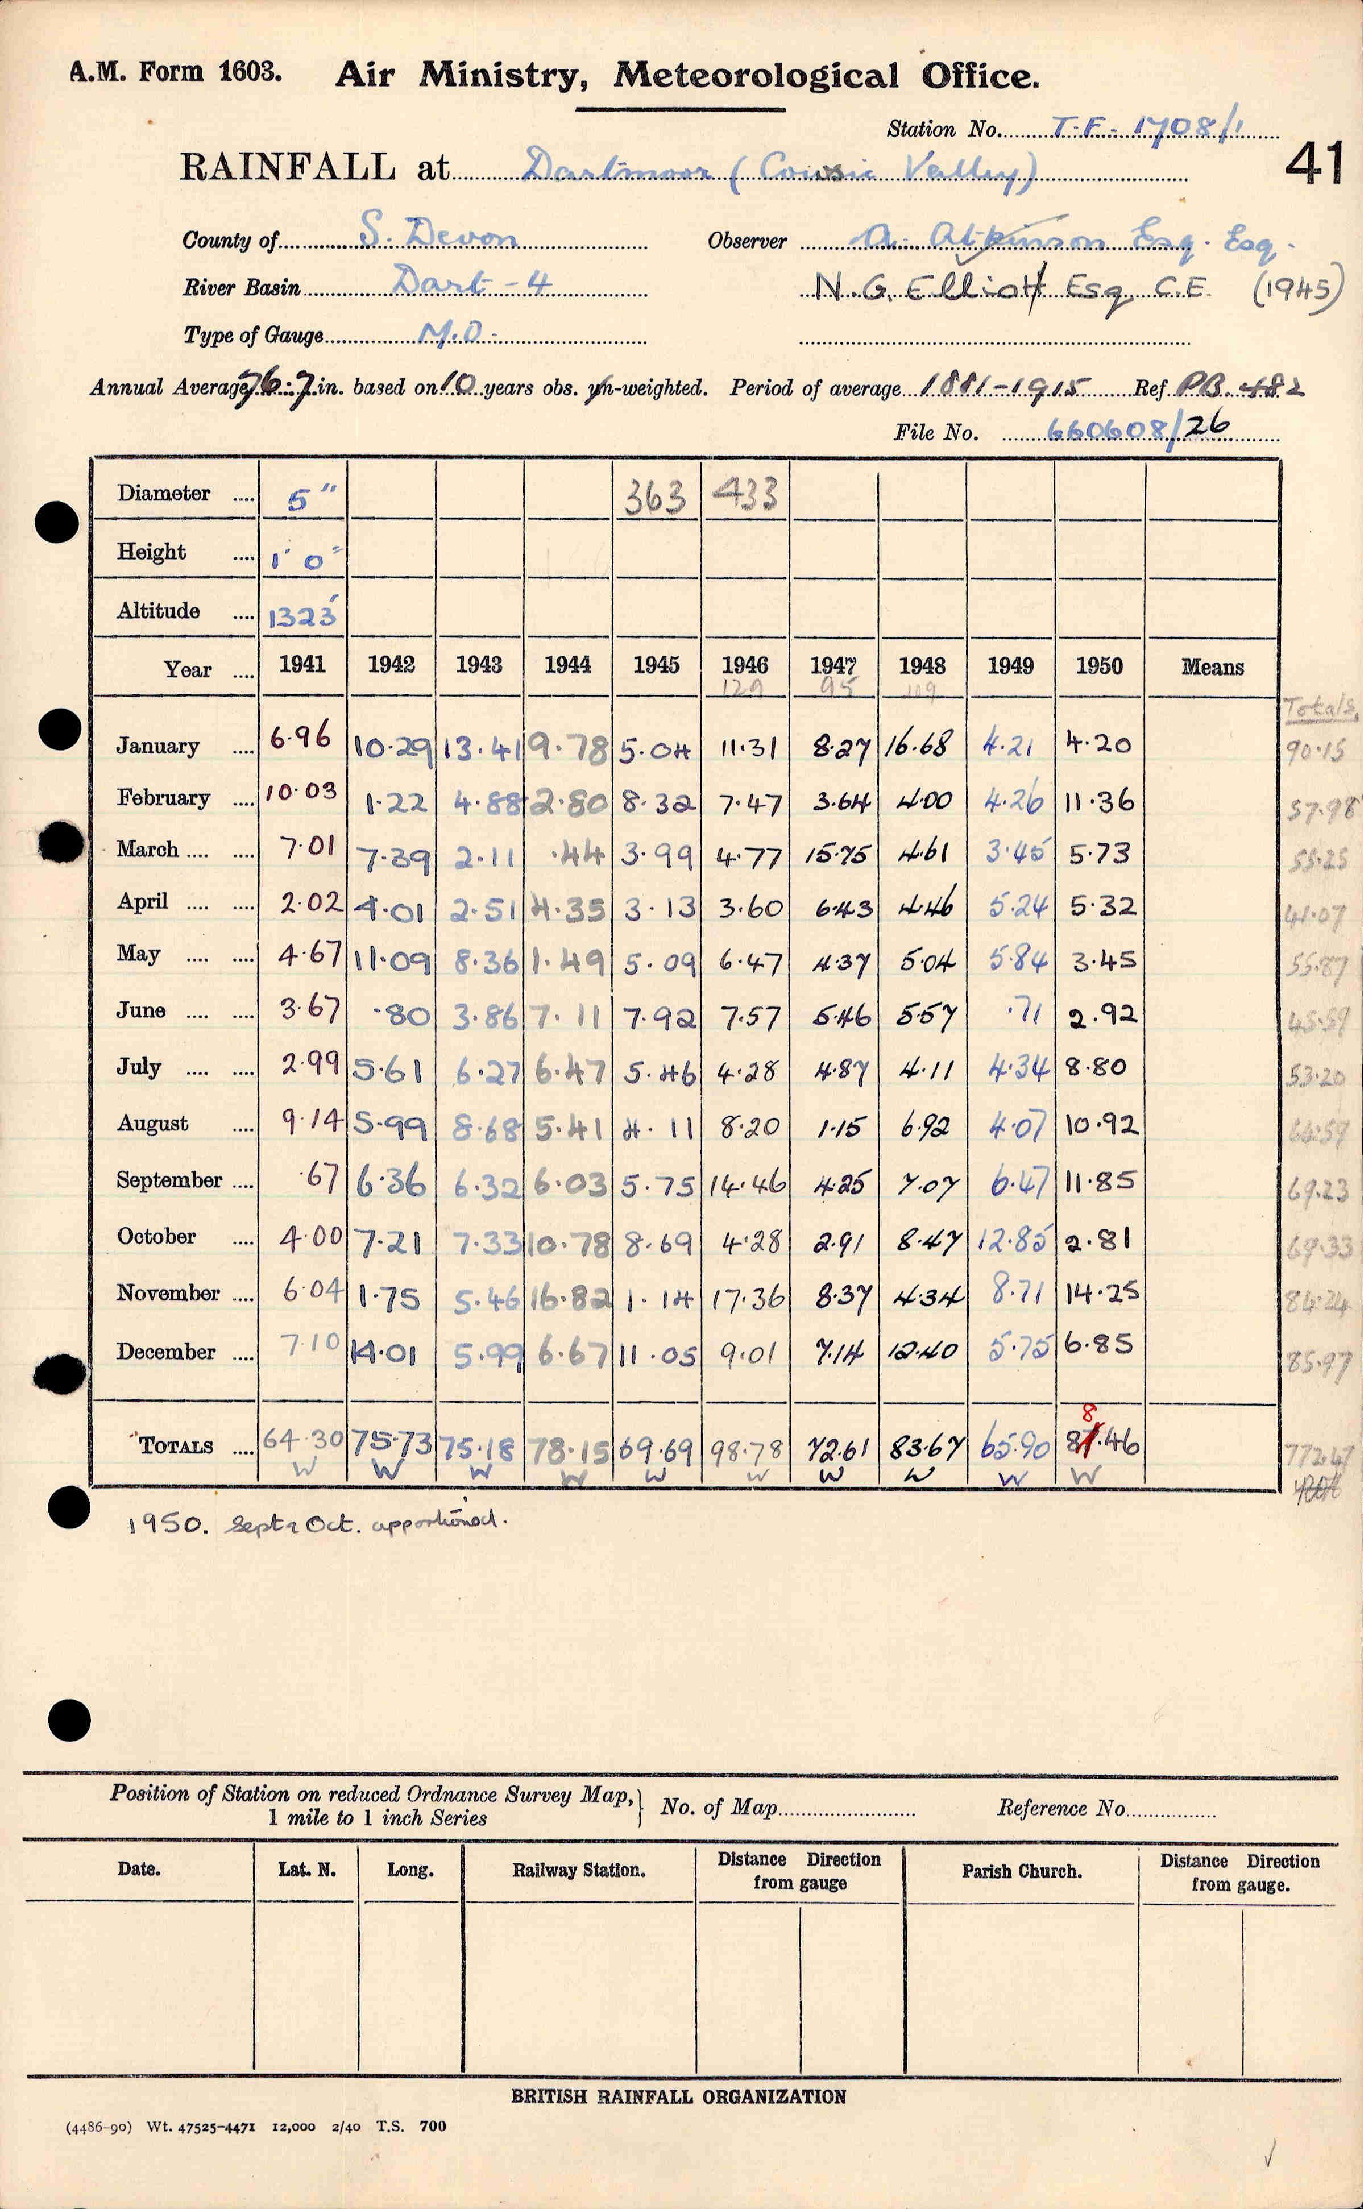 A.M. Form 1603. Air Ministry, Meteorological Office.
Station No. T.F. 1708/1
41
RAINFALL at Dartmoor (Cowsic Valley)
County of S. Devon Observer A. Atkinson Esq. Esq.
River Basin Dart - 4 N.G. Elliott Esq C.E. (1945)
Type of Gauge M.O.
Annual Average 76.7 in. based on 10 years obs. un-weighted. Period of average 1881-1915 Ref PB. 482
File No. 660608/26
Diameter .... 5" 363 433
Height .... 1' 0"
Altitude .... 1323'
Year .... 1941 1942 1943 1944 1945 1946 1947 1948 1949 1950 Means
129 95 109
Totals
January .... 6.96 10.29 13.41 9.78 5.04 11.31 8.27 16.68 4.21 4.20 90.15
February .... 10.03 1.22 4.88 2.80 8.32 7.47 3.64 4.00 4.26 11.36 57.98
March .... .... 7.01 7.39 2.11 .44 3.99 4.77 15.75 4.61 3.45 5.73 55.25
April .... .... 2.02 4.01 2.51 4.35 3.13 3.60 6.43 4.46 5.24 5.32 41.07
May .... .... 4.67 11.09 8.36 1.49 5.09 6.47 4.37 5.04 5.84 3.45 55.87
June .... .... 3.67 .80 3.86 7.11 7.92 7.57 5.46 5.57 .71 2.92 45.59
July .... .... 2.99 5.61 6.27 6.47 5.46 4.28 4.87 4.11 4.34 8.80 53.20
August .... 9.14 5.99 8.68 5.41 4.11 8.20 1.15 6.92 4.07 10.92 64.59
September .... .67 6.36 6.32 6.03 5.75 14.46 4.25 7.07 6.47 11.85 69.23
October .... 4.00 7.21 7.33 10.78 8.69 4.28 2.91 8.47 12.85 2.81 69.33
November .... 6.04 1.75 5.46 16.82 1.14 17.36 8.37 4.34 8.71 14.25 84.24
December .... 7.10 14.01 5.99 6.67 11.05 9.01 7.14 12.40 5.75 6.85 85.97
TOTALS .... 64.30 75.73 75.18 78.15 69.69 98.78 72.61 83.67 65.90 88.46 772.47
W W W W W W W W W W
1950. Sept & Oct. apportioned.
Position of Station on reduced Ordnance Survey Map, } No. of Map Reference No.
1 mile to 1 inch Series
Date. Lat. N. Long. Railway Station. Distance from gauge Direction Parish Church. Distance Direction from gauge.
BRITISH RAINFALL ORGANIZATION
(4486-90) Wt. 47525-4471 12,000 2/40 T.S. 700